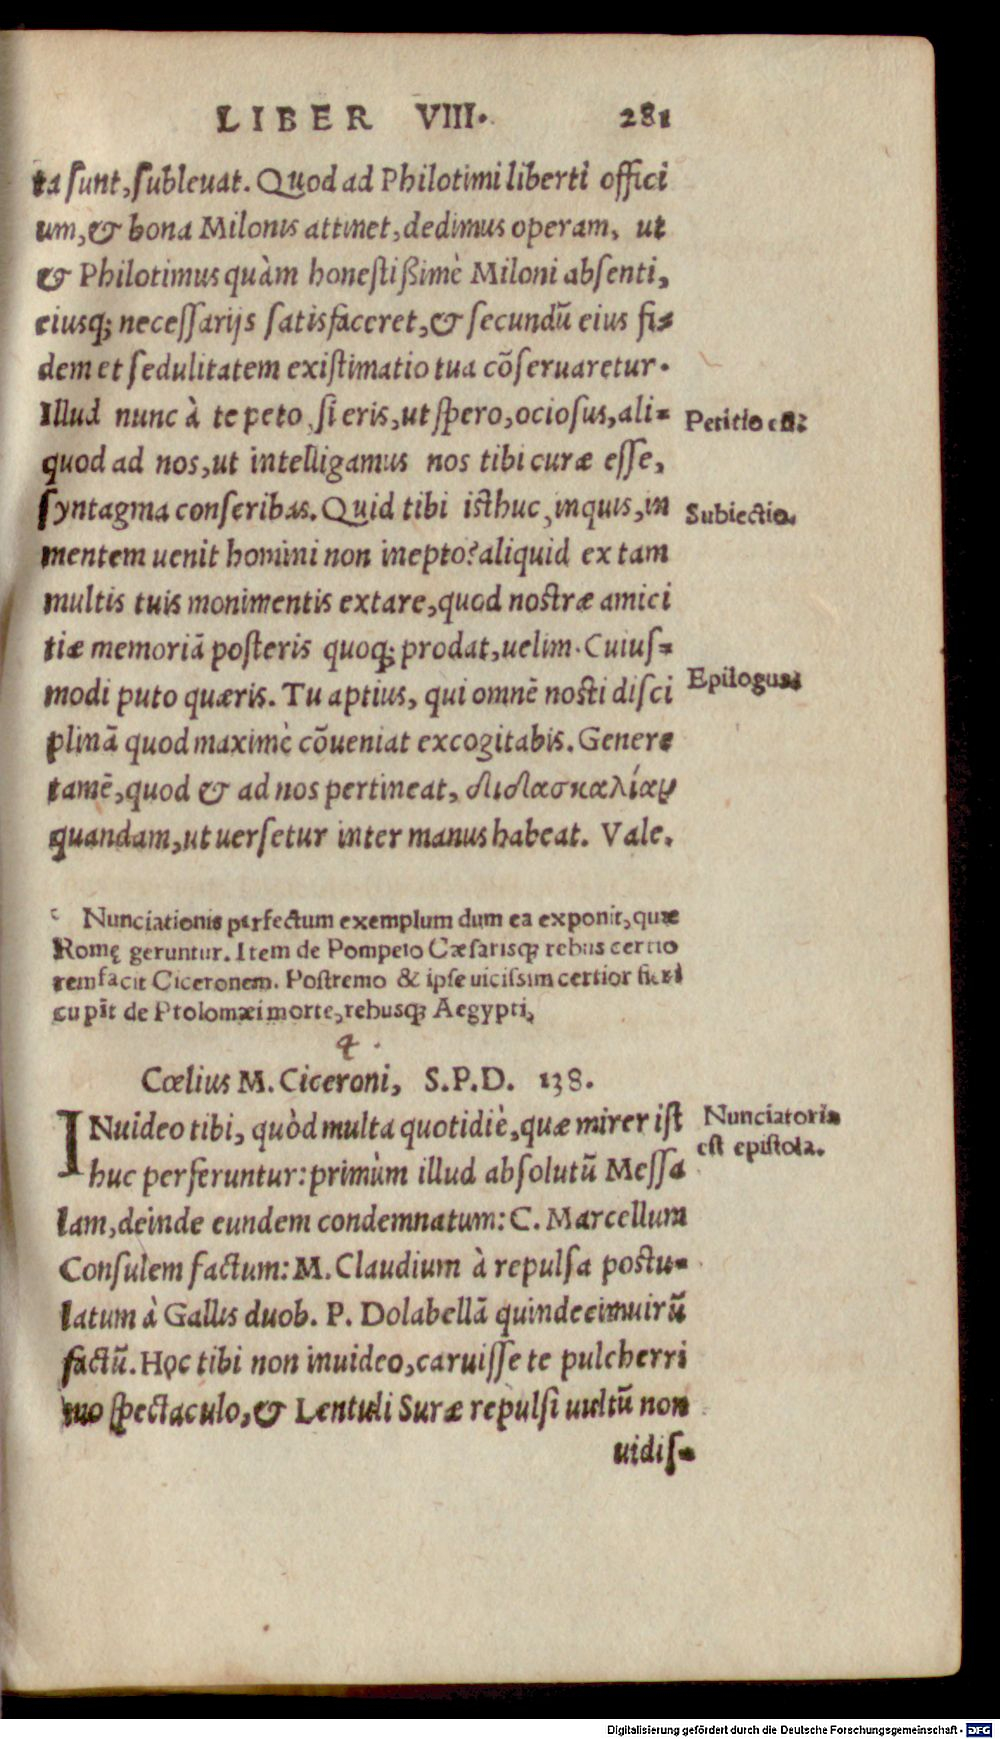 LIBER VIII. 281
ta sunt, subleuat. Quod ad Philotimi liberti offici
um, & bona Milonis attinet, dedimus operam, ut
& Philotimus quàm honestißimè Miloni absenti,
eiusq; necessarijs satisfaceret, & secundū eius fi-
dem et sedulitatem existimatio tua cōseruaretur.
Illud nunc à te peto, si eris, ut spero, ociosus, ali-
Petitio est
quod ad nos, ut intelligamus nos tibi curæ esse,
syntagma conseribas. Quid tibi isthuc, inquis, in
Subiectio.
mentem uenit homini non inepto? aliquid ex tam
multis tuis monimentis extare, quod nostræ amici
tiæ memoriā posteris quoq; prodat, uelim. Cuius-
Epilogus.
modi puto quæris. Tu aptius, qui omnē nosti disci
plinā quod maximè cōueniat excogitabis. Genere
tamē, quod & ad nos pertineat, διδασκαλίαν
quandam, ut uersetur inter manus habeat. Vale.
Nunciationis perfectum exemplum dum ea exponit, quæ
Romę geruntur. Item de Pompeio Cæsarisq; rebus certio
rem facit Ciceronem. Postremo & ipse uicissim certior fieri
cupit de Ptolomæi morte, rebusq; Aegypti,
4
Cœlius M. Ciceroni, S.P.D. 138.
INuideo tibi, quòd multa quotidiè, quæ mirer ist
Nunciatoria
est epistola.
huc perferuntur: primùm illud absolutū Messa
lam, deinde eundem condemnatum: C. Marcellum
Consulem factum: M. Claudium à repulsa postu-
latum à Gallis duob. P. Dolabellā quindecimuirū
factū. Hoc tibi non inuideo, caruisse te pulcherri
mo spectaculo, & Lentuli Suræ repulsi uultū non
uidis-
Digitalisierung gefördert durch die Deutsche Forschungsgemeinschaft - DFG